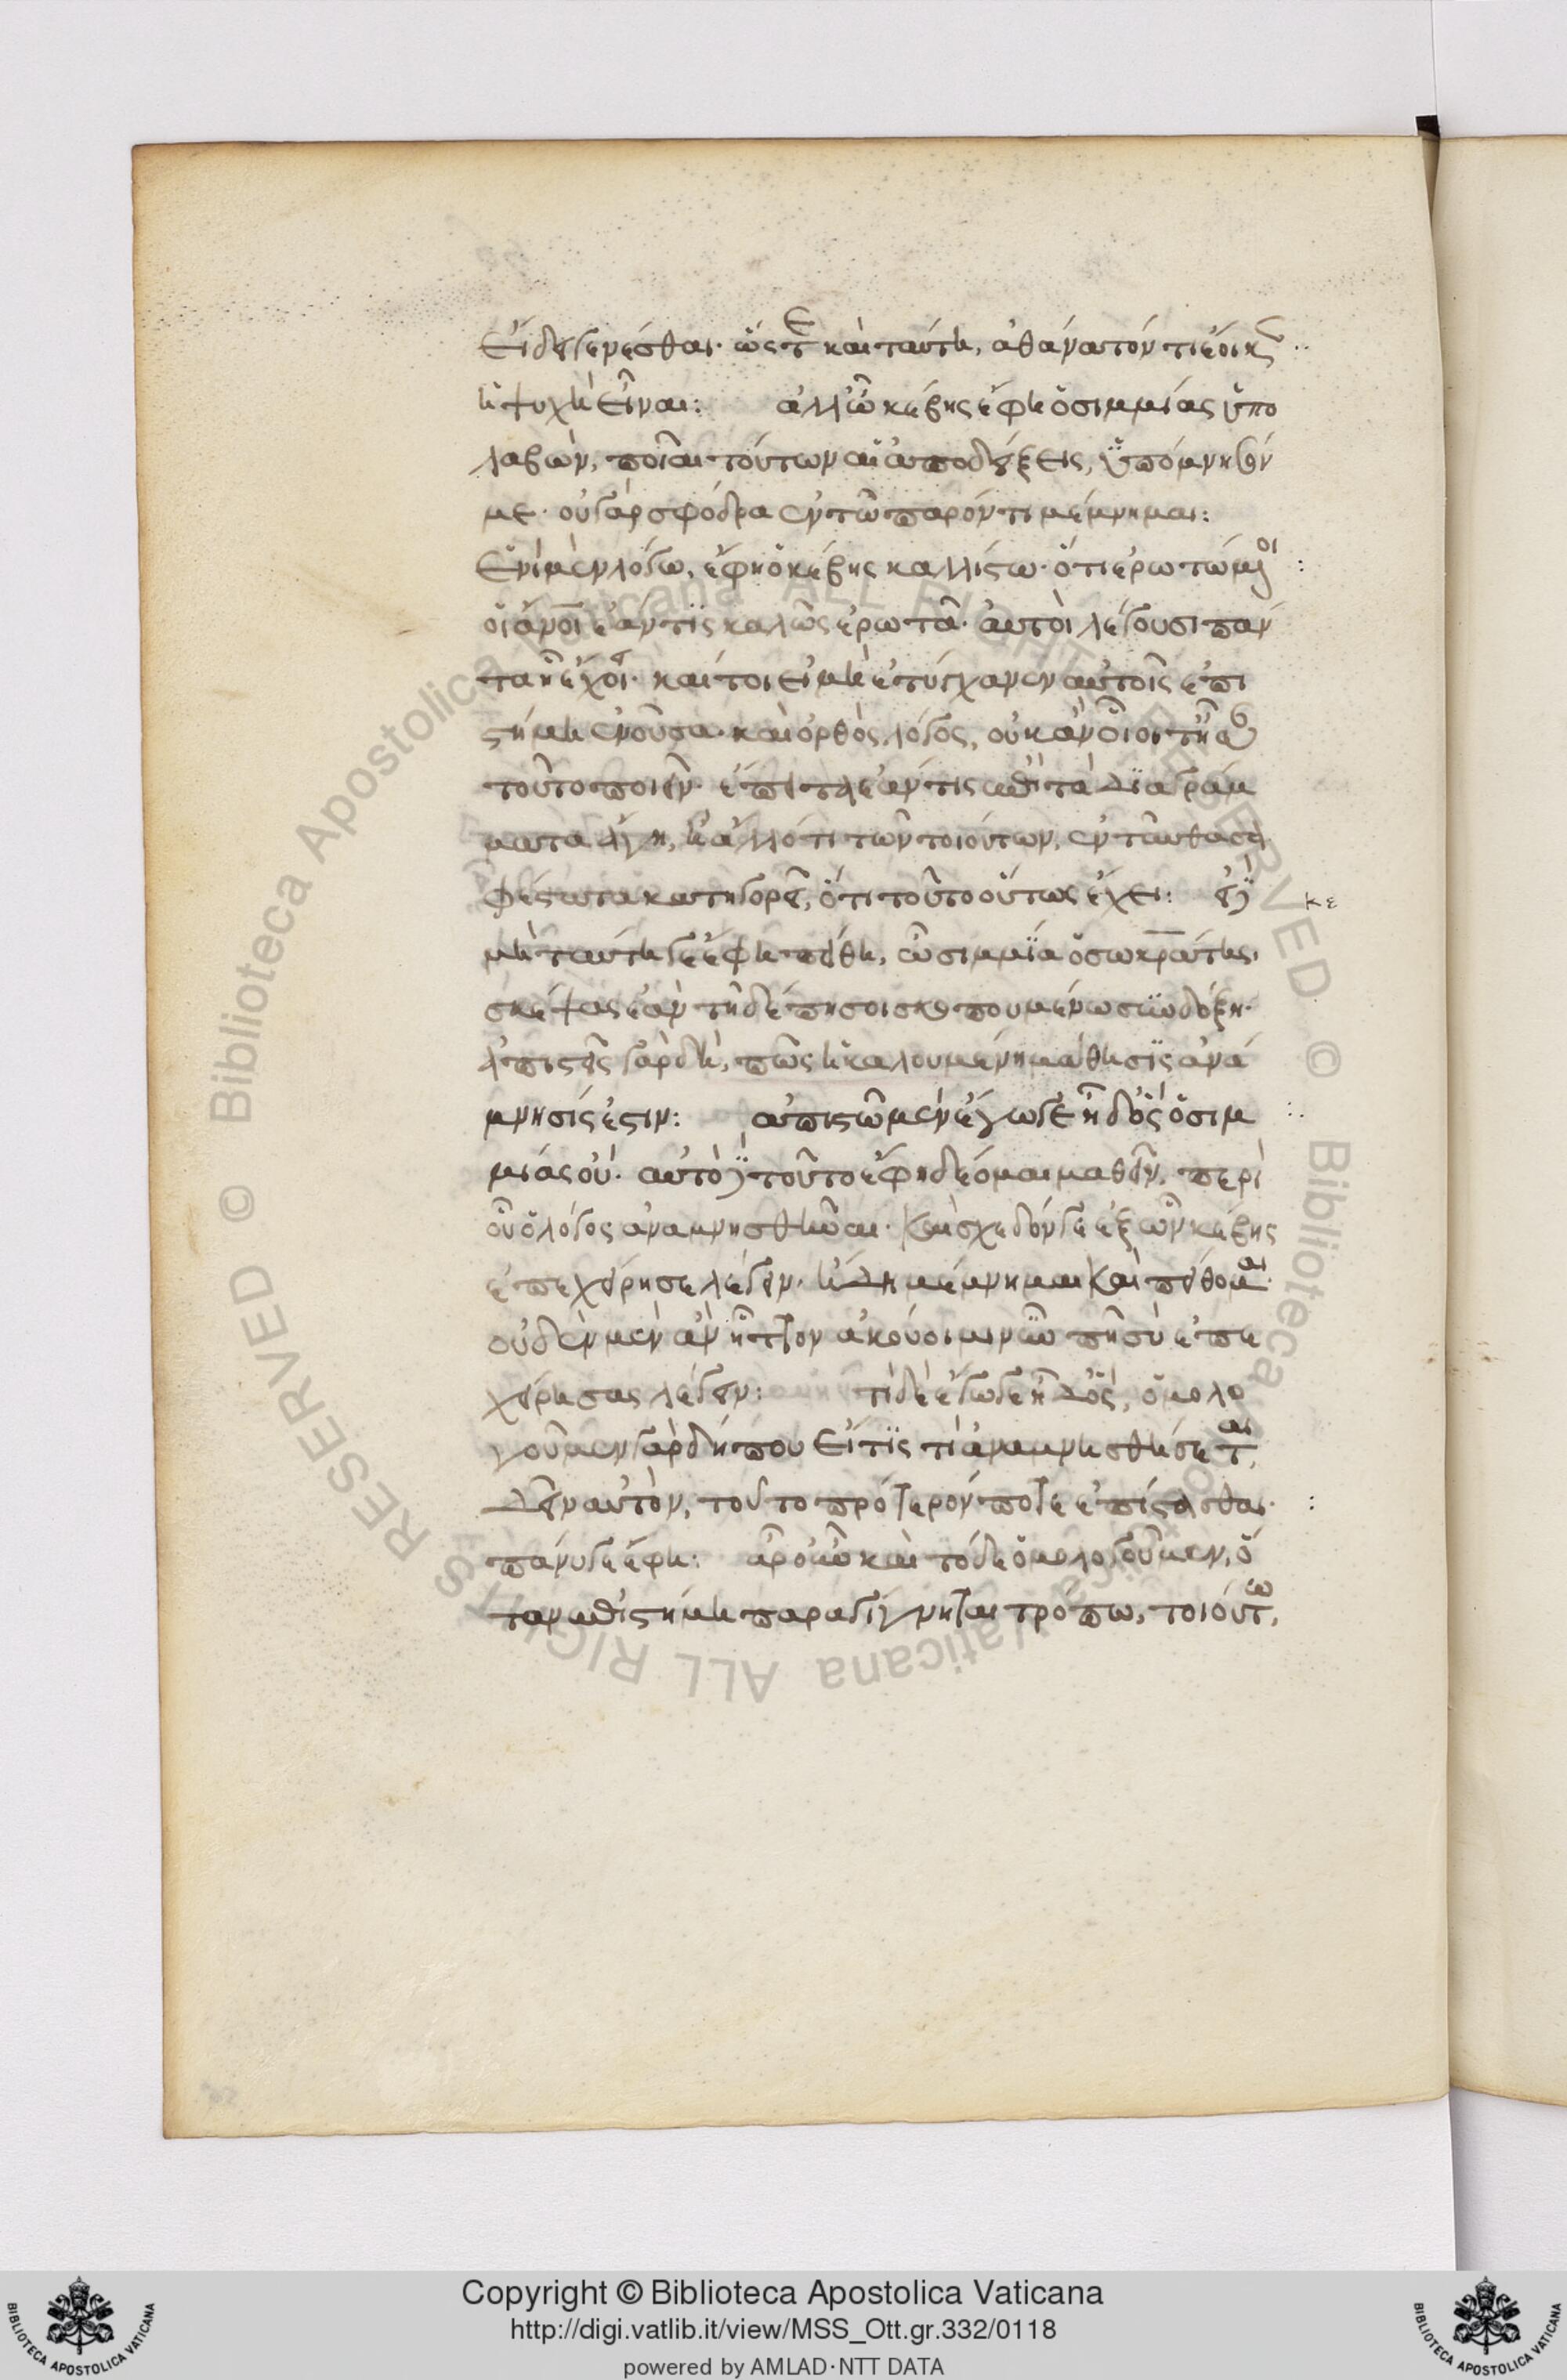 εἴδει γενέσθαι· ὥστε καὶ ταύτη, ἀθάνατόν τι ἔοικεν
ἡ ψυχὴ εἶναι: ἀλλ' ὦ κέβης ἔφη ὁ σιμμίας ὑπο
λαβὼν, ποῖαι τούτων αἱ ἀποδείξεις, ὑπόμνησόν
με· οὐ γὰρ σφόδρα ἐν τῶ παρόντι μέμνημαι:
ἑνὶ μὲν λόγω, ἔφη ὁ κέβης καλλίστω· ὅτι ἐρωτώμενοι
οἱ ἄνοι ἐάν τις καλῶς ἐρωτᾶ· αὐτοὶ λέγουσι πάν
τα ἧ ἔχει· καίτοι εἰ μὴ ἐτύγχανεν αὐτοῖς ἐπι
στήμη ἐνοῦσα· καὶ ὀρθὸς λόγος, οὐκ ἂν οἷοι τ' ἦσαν
τοῦτο ποιεῖν· ἔπειτα ἐάν τις ἐπὶ τὰ διαγράμ
ματα ἄγη, ἢ ἄλλό τι τῶν τοιούτων, ἐνταῦθα σα
φέστατα κατηγορεῖ, ὅτι τοῦτο οὕτως ἔχει: εἰ δὲ
μὴ ταύτη γε ἔφη πείθη, ὦ σιμμία ὁ σωκράτης,
σκέψαι ἐὰν τῆδέ πή σοι σκοπουμένω συνδόξη·
ἀπιστεῖς γὰρ δὴ, πῶς ἡ καλουμένη μάθησις ἀνά
μνησίς ἐστιν: ἀπιστῶ μὲν ἔγωγε ἦ δ' ὃς ὁ σιμ
μίας οὔ· αὐτὸ δὲ τοῦτο ἔφη δέομαι μαθεῖν, περὶ
οὗ ὁ λόγος ἀναμνησθῆναι· καὶ σχεδόν γε ἐξ ὧν κέβης
ἐπεχείρησε λέγειν· ἤδη μέμνημαι καὶ πείθομαι·
οὐδὲν μὲν ἂν ἧττον ἀκούοιμι νῦν πῆ σὺ ἐπε
χείρησας λέγειν: τῆδε ἔγωγε ἦ δ' ὃς, ὁμολο
γοῦμεν γὰρ δήπου εἴ τις τὶ ἀναμνησθήσεται,
δεῖν αὐτὸν, τοῦτο πρότερόν ποτε ἐπίστασθαι·
πάνυ γε ἔφη: ἆρ' οὖν καὶ τόδε ὁμολογοῦμεν, ὅ
ταν ἐπιστήμη παραγίγνηται τρόπω, τοιούτω,
κε
Copyright © Biblioteca Apostolica Vaticana
http://digi.vatlib.it/view/MSS_Ott.gr.332/0118
powered by AMLAD·NTT DATA